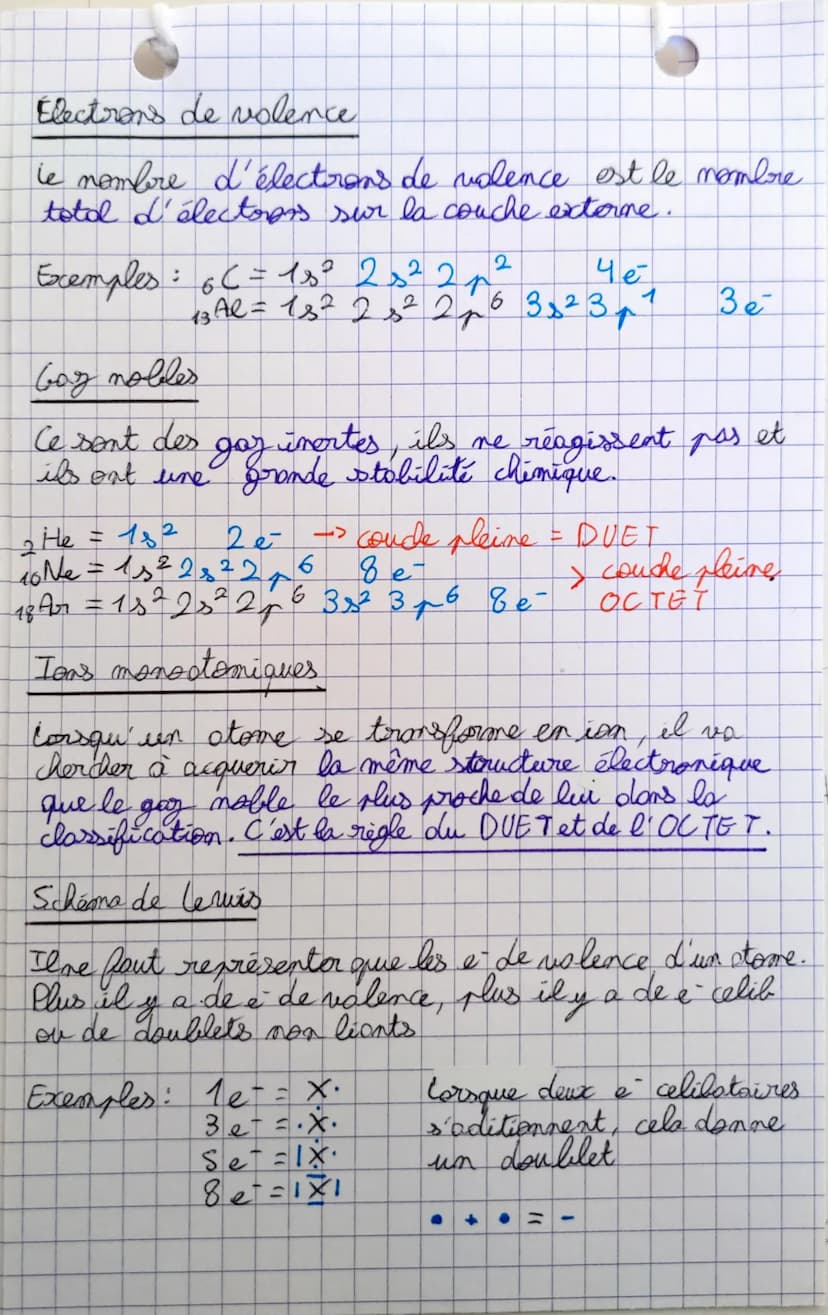 Électrons de valence
Le nombre d'électrons de valence est le nombre
total d'électrons sur la couche externe.
Exemples : ₆C = 1s² 2s² 2p² 4e⁻
₁₃Al = 1s² 2s² 2p⁶ 3s² 3p¹ 3e⁻
Gaz nobles
Ce sont des gaz inertes, ils ne réagissent pas et
ils ont une grande stabilité chimique.
₂He = 1s² 2e⁻ → couche pleine = DUET
₁₀Ne = 1s² 2s² 2p⁶ 8e⁻ > couche pleine
₁₈Ar = 1s² 2s² 2p⁶ 3s² 3p⁶ 8e⁻ OCTET
Ions monoatomiques
Lorsqu'un atome se transforme en ion, il va
chercher à acquerir la même structure électronique
que le gaz noble le plus proche de lui dans la
classification. C'est la règle du DUET et de l'OCTET.
Schéma de Lewis
Il ne faut représenter que les e⁻ de valence d'un atome.
Plus il y a de e⁻ de valence, plus il y a de e⁻ celib
ou de doublets non liants
Exemples : 1e⁻ = X·
3e⁻ = ·Ẋ·
5e⁻ = |Ẋ·
8e⁻ = |X̲̅|
Lorsque deux e⁻ celibataires
s'aditionnent, cela donne
un doublet
• + • = -